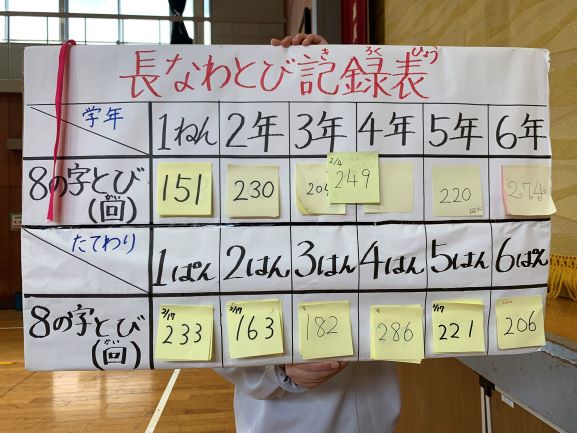 長なわとび記録表
き ろく ひょう
学年 1ねん 2年 3年 4年 5年 6年
8の字とび(回) 151 230 204 2/4 249 220 274
かい
たてわり 1ぱん 2はん 3はん 4はん 5はん 6ぱん
8の字とび(回) 2/17 233 2/17 163 182 286 2/17 221 206
かい